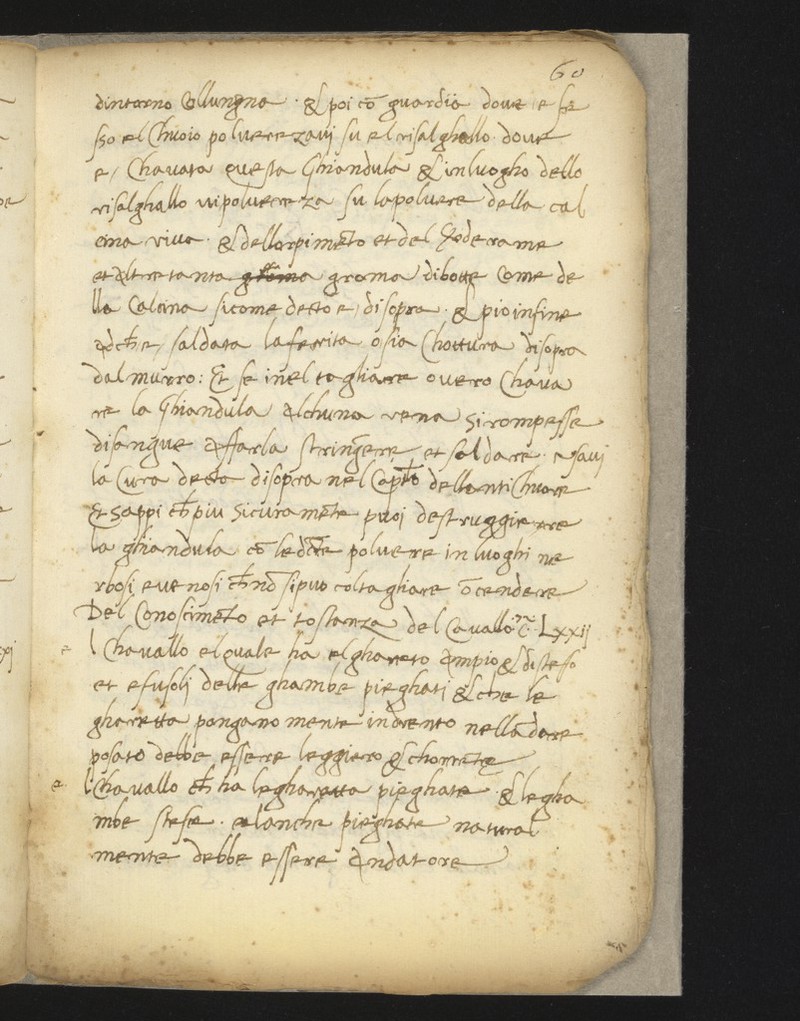 60
dintorno collungna · & poi cō guardia dove e fe
sso el chuoio polverezavi su el risalghallo · dove
e / chavata questa ghiandula & in luogho dello
risalghallo vi polvereza su la polvere della cal
cina viva · & dellorpimēto et del verderame
et altretanta groma groma di botte come de
lla calcina sicome detto e / di sopra · & pio infine
adch̄ e / saldata la ferita o sia chottura disopra
dal murro : Et se inel tagliare overo chava
re la ghiandula alchuna vena si rompesse
di sangue a ffarla stringere et saldare · asavi
la cura detta disopra nel capto dellantichuore
Et sappi ch̄ piu sicuramēte puoi destruggierre
la ghiandula cō le dcte polvere in luoghi ne
rbosi e venosi ch̄ nō si puo col tagliare ōcendere
Del conoscimēto et tostanza del cavallo · c̄ · Lxxij
e l chavallo el quale ha el ghareto ampio & disteso
et e fusoli delle ghambe pieghati & che le
gharetta pongano mente indrento nella dare
posato debbe essere leggiero & chorrente
e l chavallo ch̄ ha le gharetta pieghate · & le gha
mbe stese · e lanche pieghate natural
mente debbe essere andatore